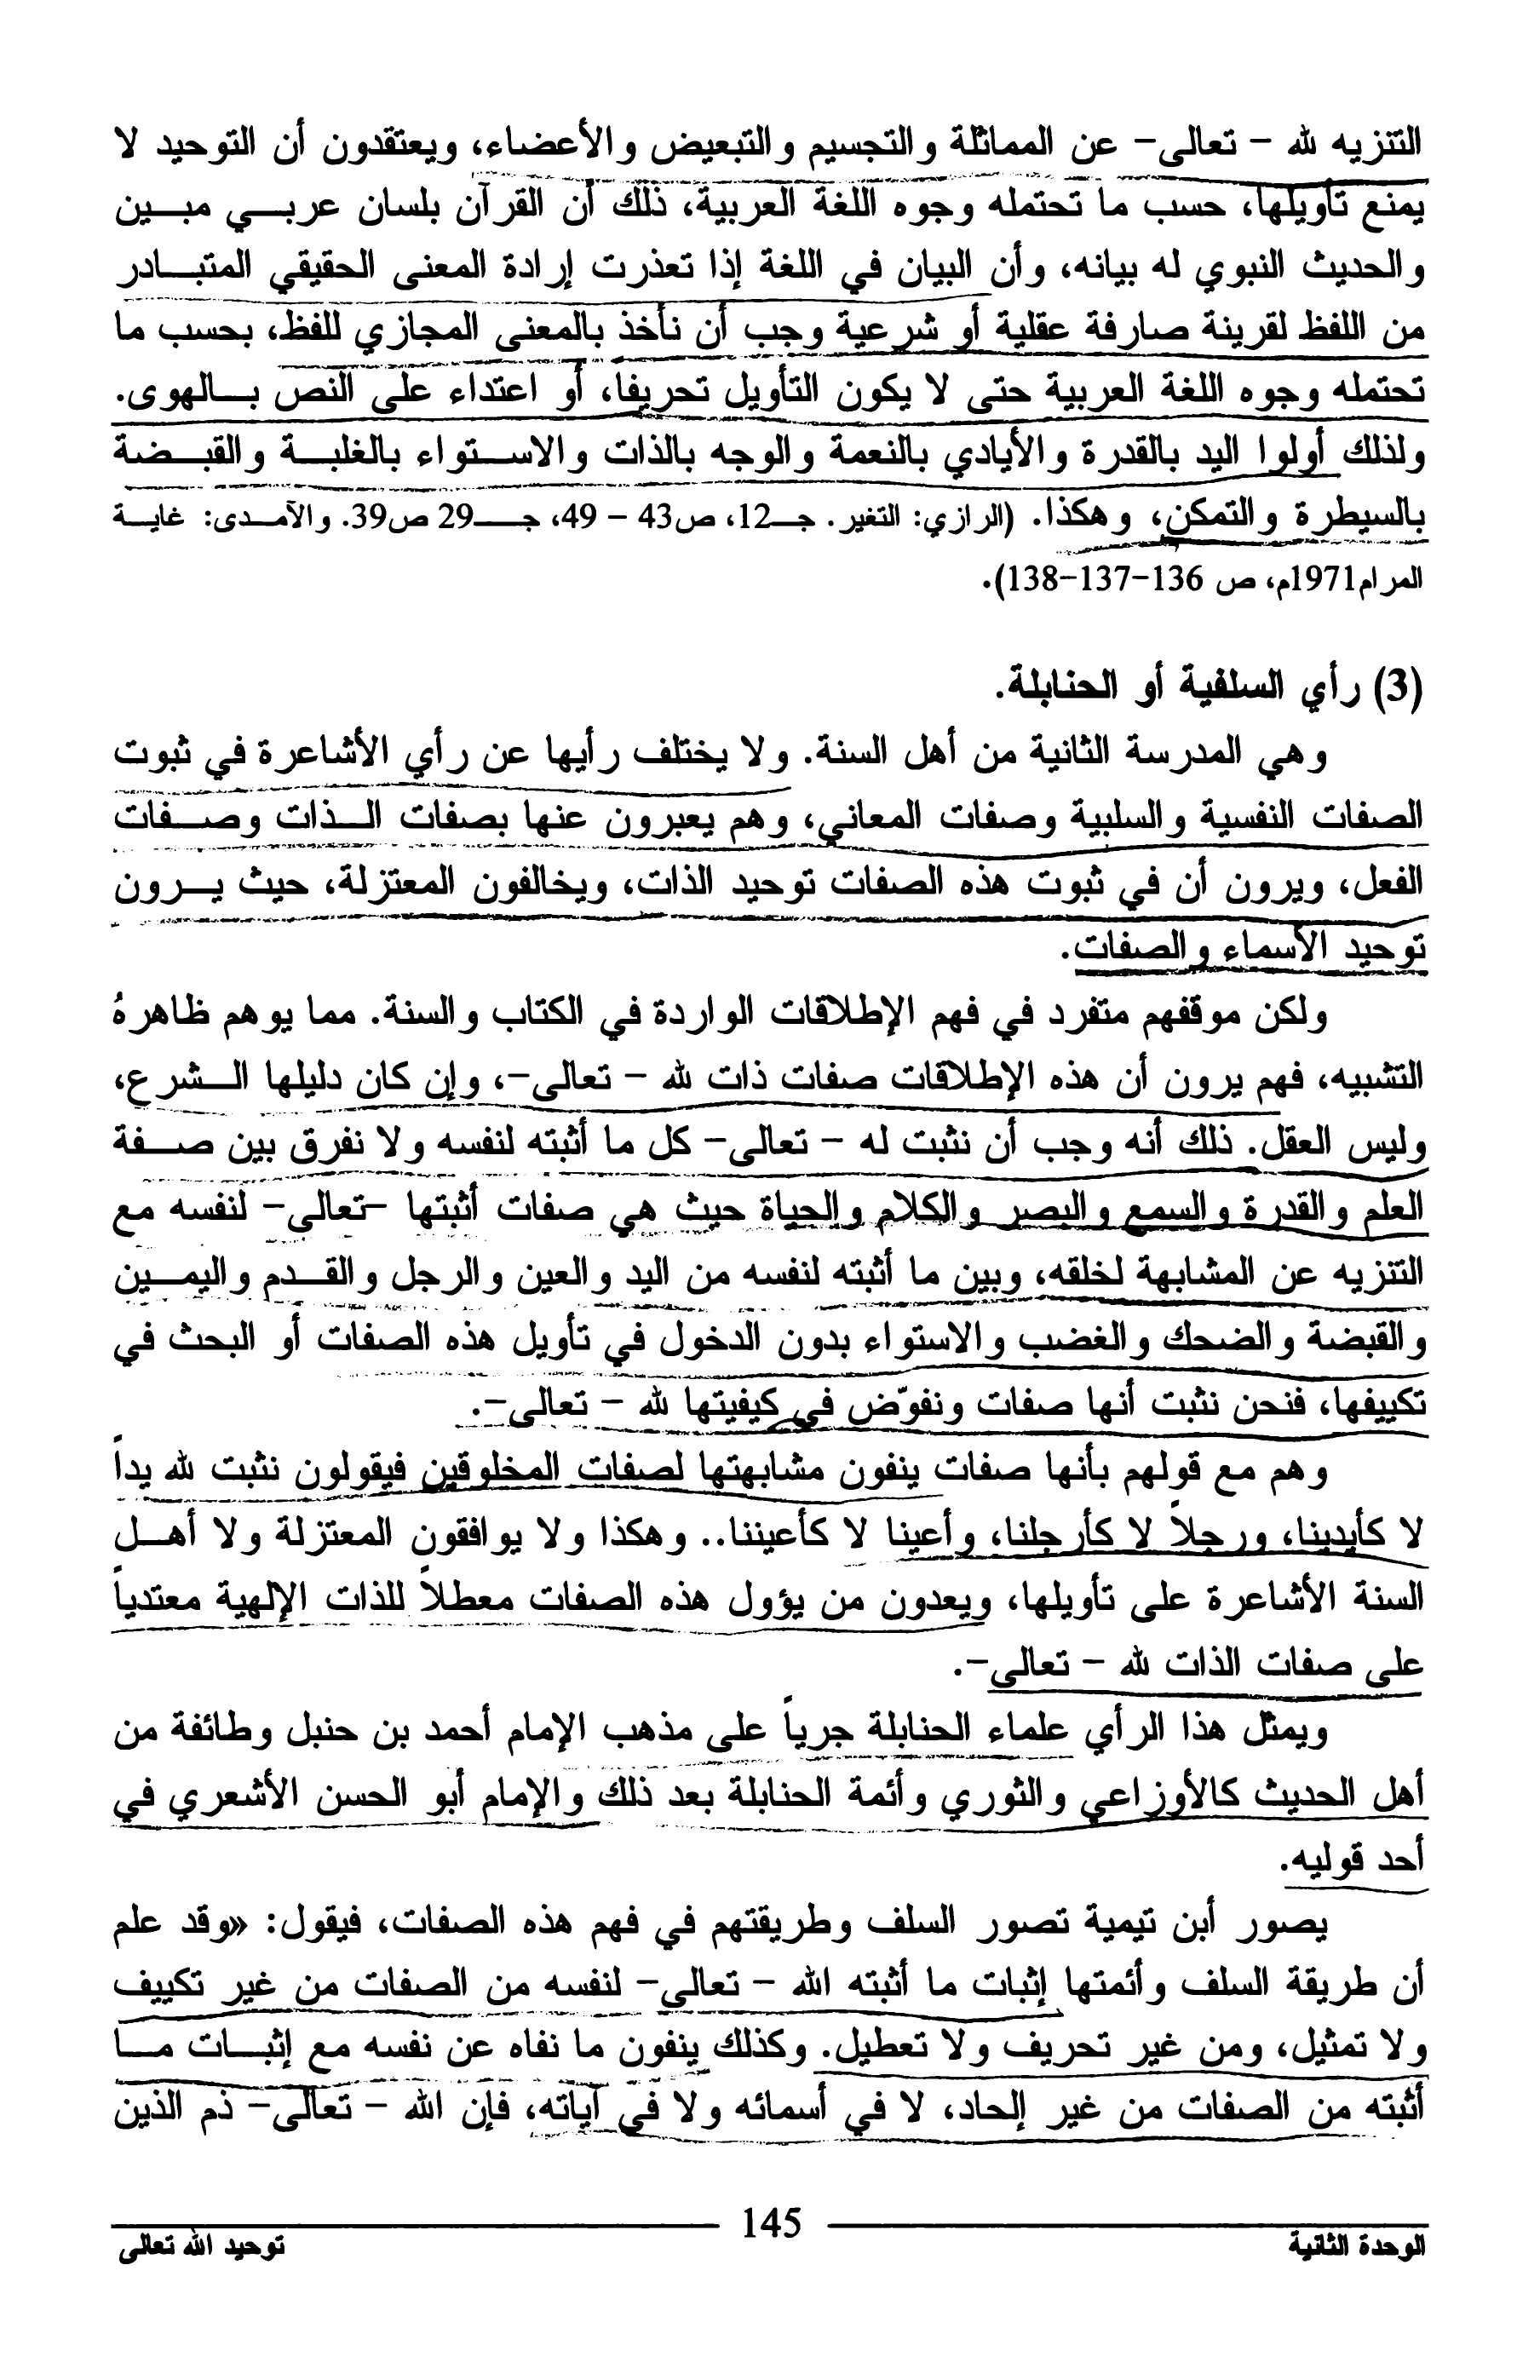 التنزيه لله - تعالى- عن المماثلة والتجسيم والتبعيض والأعضاء، ويعتقدون أن التوحيد لا
يمنع تأويلها، حسب ما تحتمله وجوه اللغة العربية، ذلك أن القرآن بلسان عربي مبين
والحديث النبوي له بيانه، وأن البيان في اللغة إذا تعذرت إرادة المعنى الحقيقي المتبادر
من اللفظ لقرينة صارفة عقلية أو شرعية وجب أن نأخذ بالمعنى المجازي للفظ، بحسب ما
تحتمله وجوه اللغة العربية حتى لا يكون التأويل تحريفا، أو اعتداء على النص بالهوى.
ولذلك أولوا اليد بالقدرة والأيادي بالنعمة والوجه بالذات والاستواء بالغلبة والقبضة
بالسيطرة والتمكن، وهكذا. (الرازي: التغير. جـ12، ص43 - 49، جـ29 ص39. والآمدى: غاية
المرام1971م، ص 136-137-138).
(3) رأي السلفية أو الحنابلة.
وهي المدرسة الثانية من أهل السنة. ولا يختلف رأيها عن رأي الأشاعرة في ثبوت
الصفات النفسية والسلبية وصفات المعاني، وهم يعبرون عنها بصفات الذات وصفات
الفعل، ويرون أن في ثبوت هذه الصفات توحيد الذات، ويخالفون المعتزلة، حيث يرون
توحيد الأسماء والصفات.
ولكن موقفهم متفرد في فهم الإطلاقات الواردة في الكتاب والسنة. مما يوهم ظاهرهُ
التشبيه، فهم يرون أن هذه الإطلاقات صفات ذات لله - تعالى-، وإن كان دليلها الشرع،
وليس العقل. ذلك أنه وجب أن نثبت له - تعالى- كل ما أثبته لنفسه ولا نفرق بين صفة
العلم والقدرة والسمع والبصر والكلام والحياة حيث هي صفات أثبتها -تعالى- لنفسه مع
التنزيه عن المشابهة لخلقه، وبين ما أثبته لنفسه من اليد والعين والرجل والقدم واليمين
والقبضة والضحك والغضب والاستواء بدون الدخول في تأويل هذه الصفات أو البحث في
تكييفها، فنحن نثبت أنها صفات ونفوّض في كيفيتها لله - تعالى-.
وهم مع قولهم بأنها صفات ينفون مشابهتها لصفات المخلوقين فيقولون نثبت لله يداً
لا كأيدينا، ورجلاً لا كأرجلنا، وأعينا لا كأعيننا.. وهكذا ولا يوافقون المعتزلة ولا أهل
السنة الأشاعرة على تأويلها، ويعدون من يؤول هذه الصفات معطلاً للذات الإلهية معتدياً
على صفات الذات لله - تعالى-.
ويمثل هذا الرأي علماء الحنابلة جرياً على مذهب الإمام أحمد بن حنبل وطائفة من
أهل الحديث كالأوزاعي والثوري وأئمة الحنابلة بعد ذلك والإمام أبو الحسن الأشعري في
أحد قوليه.
يصور أبن تيمية تصور السلف وطريقتهم في فهم هذه الصفات، فيقول: «وقد علم
أن طريقة السلف وأئمتها إثبات ما أثبته الله - تعالى- لنفسه من الصفات من غير تكييف
ولا تمثيل، ومن غير تحريف ولا تعطيل. وكذلك ينفون ما نفاه عن نفسه مع إثبات ما
أثبته من الصفات من غير إلحاد، لا في أسمائه ولا في آياته، فإن الله - تعالى- ذم الذين
145
الوحدة الثانية
توحيد الله تعالى